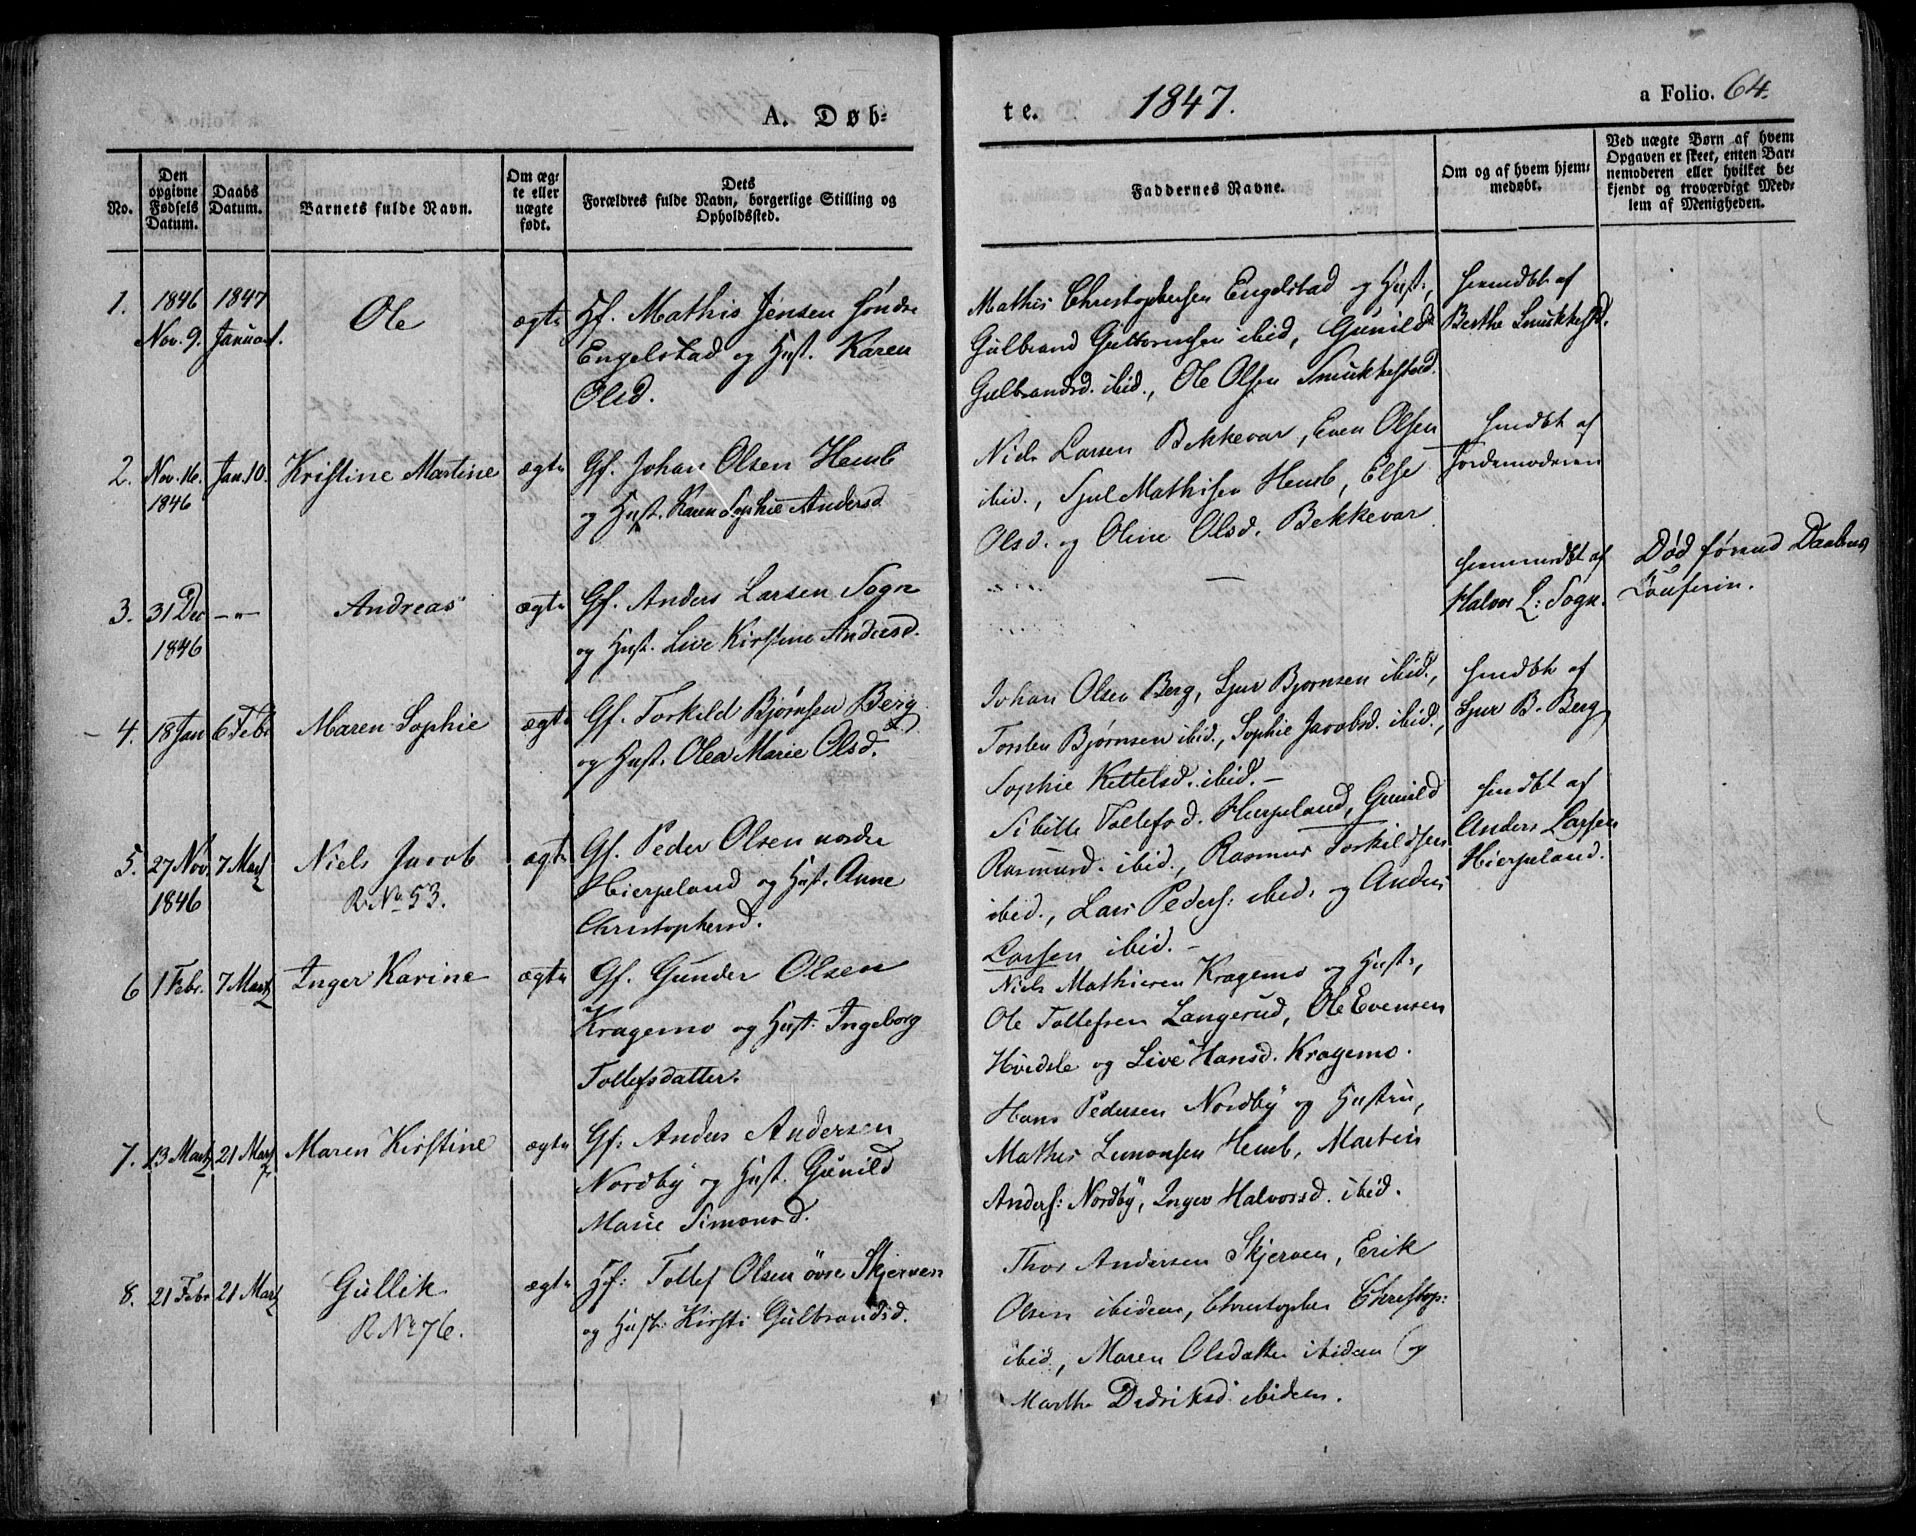 A. Døb-
te. 1847. a Folio. 64.
No.
Den opgivne Fødsels Datum.
Daabs Datum.
Barnets fulde Navn.
Om ægte eller uægte født.
Dets Forældres fulde Navn, borgerlige Stilling og Opholdssted.
Faddernes Navne.
Om og af hvem hjemmedøbt.
Ved uægte Børn af hvem Opgaven er skeet, enten Barnemoderen eller hvilket bekjendt og troværdigt Medlem af Menigheden.
1. 1846 Nov. 9. 1847 Januar 1. Ole ægte
Gf. Mathis Jensen søndre
Engelstad og Hust. Karen
Olsd.
Mathis Christophersen Engelstad og Hust.,
Gulbrand Guttormsen ibid, Gunild
Gulbrandsd. ibid., Ole Olsen Smukkestad.
hjemmedbt af
Berthe Smukkestd.
2. Nov. 16. 1846 Jan. 10. Kristine Martine ægte
Gf. Johan Olsen Hemb
og Hust. Karen Sophie Andersd
Niels Larsen Bekkevar, Even Olsen
ibid., Sjul Mathisen Hemb, Else
Olsd. og Oline Olsd. Bekkevar
hmdbt af
Jordemoderen
3. 31 Dec 1846 -"- Andreas ægte
Gf. Anders Larsen Sogn
og Hust. Live Kirstine Andersd.
—
hjemmedbt af
Halvor L: Sogn.
Død førend Daabens
4. 18 Jan 6 Febr Maren Sophie ægte
Gf. Torkild Bjørnsen Berg
og Hust. Olea Marie Olsd.
Johan Olsen Berg, Sjur Bjørnsen ibid.,
Torsten Bjørnsen ibid., Sophie Jacobsd. ibid.,
Sophie Kettelsd. ibid.—
hmdbt af
Sjur B. Berg
5. 27 Nov. 1846 7 Marz Niels Jacob ægte
R No. 53.
Gf. Peder Olsen nordre
Hierpeland og Hust. Anne
Christophersd.
Sibille Tollefsd. Hierpeland, Gunild
Rasmusd. ibid., Rasmus Torkildsen
ibid., Lars Peders: ibid. og Anders
Larsen ibid.—
hmdbt af
Anders Larsen
Hierpeland.
6 1 Febr. 7 Marz Inger Karine ægte
Gf. Gunder Olsen
Kragemo og Hust: Ingeborg
Tollefsdatter.
Niels Mathiesen Kragemo og Hust.,
Ole Tollefsen Langerud, Ole Evensen
og Live Hansd. Kragemo.
7. 13 Marz 21 Marz Maren Kirstine ægte
Gf: Anders Andersen
Nordby og Hust. Gunild
Marie Simonsd.
Hans Pedersen Nordby og Hustru,
Mathis Simonsen Hemb, Martin
Anders: Nordby, Inger Halvorsd. ibid.
8. 21 Febr 21 Marz Gullik ægte
R No 76.
Gf: Tollef Olsen øvre Skjerven
og Hust. Kirsti Gulbrandsd.
Thor Andersen Skjerven, Erik
Olsen ibidem, Christopher Christop:
ibid., Maren Olsdatter ibidem og
Marthe Dedriksd ibidem.